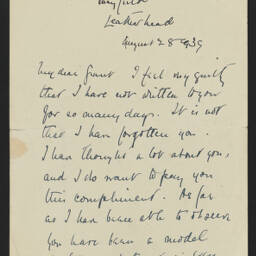 Leatherhead
August 28 1939
My dear Grant I feel very guilty
that I have not written to you
for so many days. It is not
that I have forgotten you.
I have thought a lot about you,
and I do want to pay you
this compliment. As far
as I have been able to observe
you have been a model